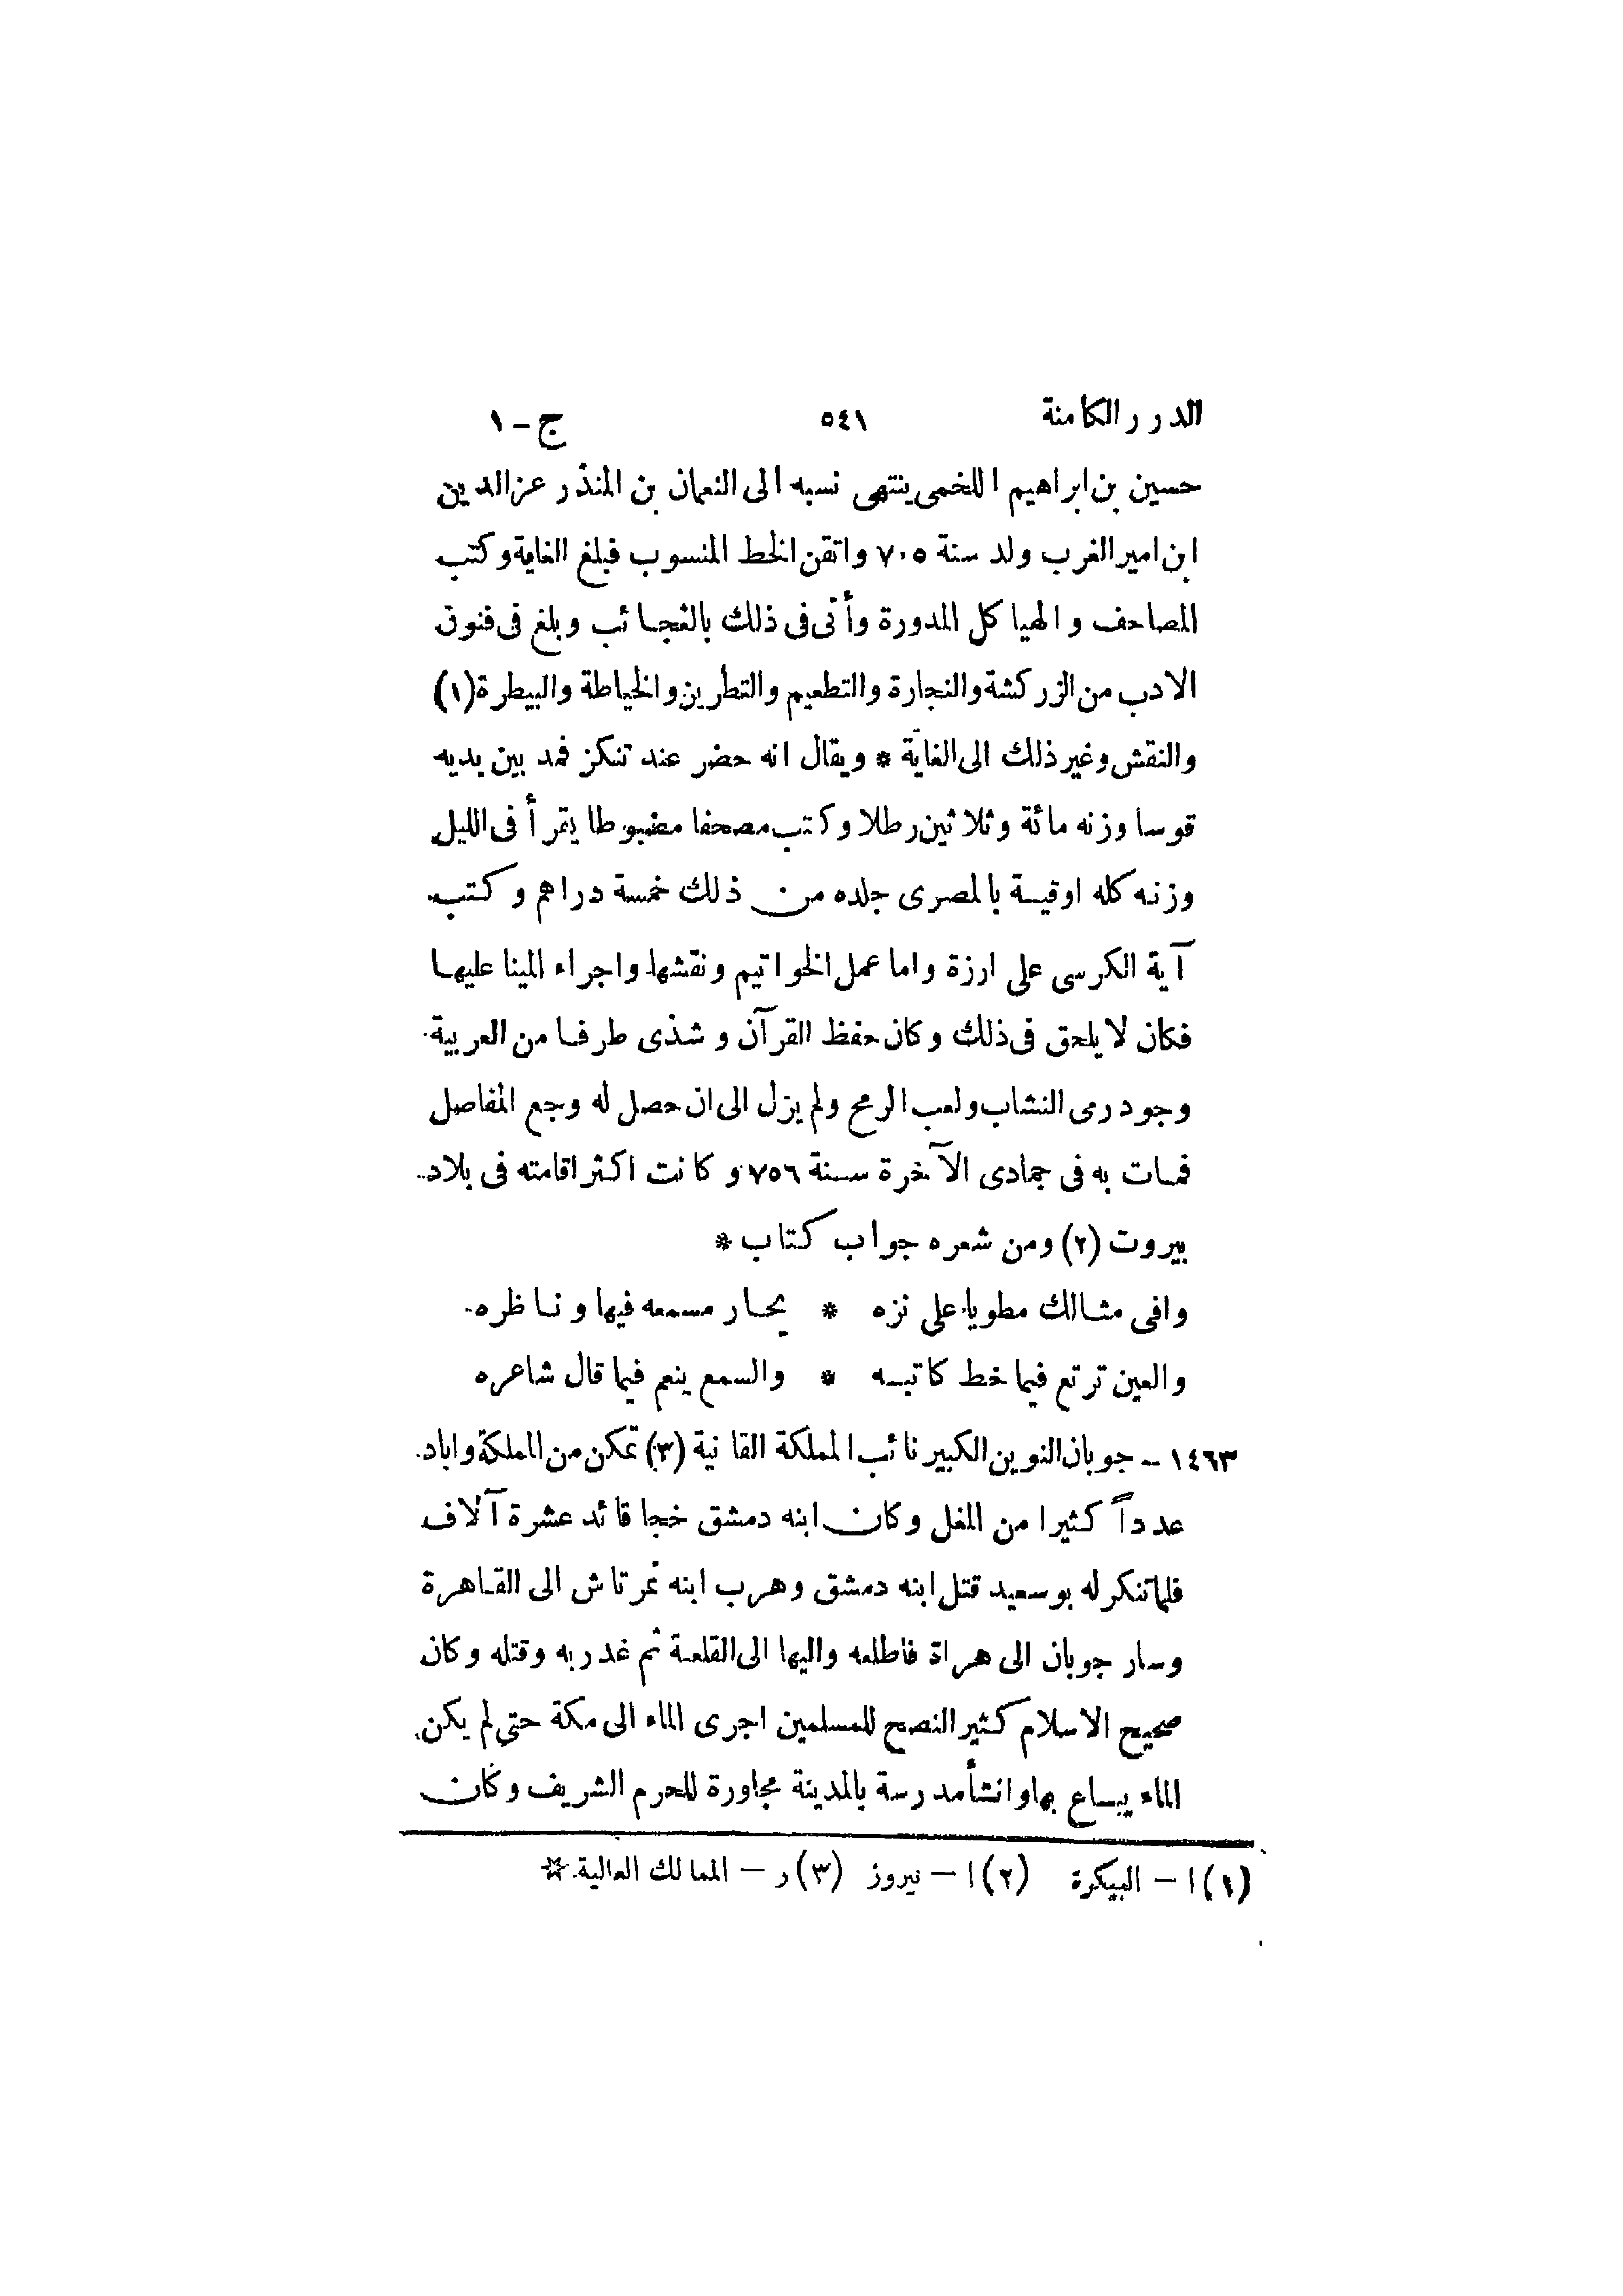 الدرر الكامنة ٥٤١ ج - ١
حسين بن ابراهيم اللخمى ينتهى نسبه الى النعمان بن المنذر عز الدين
ابن امير الغرب ولد سنة ٧٠٥ واتقن الخط المنسوب فبلغ الغاية وكتب
المصاحف والهياكل المدورة وأتى فى ذلك بالعجائب وبلغ فى فنون
الادب من الزركشة والنجارة والتطعيم والتطريز والخياطة والبيطرة (١)
والنقش وغير ذلك الى الغاية * ويقال انه حضر عند تنكز فمد بين يديه
قوسا وزنه مائة وثلاثين رطلا وكتب مصحفا مضبوطا يقرأ فى الليل
وزنه كله اوقية بالمصرى جلده من ذلك خمسة دراهم وكتب
آية الكرسى على ارزة واما عمل الخواتيم ونقشها واجراء المينا عليها
فكان لا يلحق فى ذلك وكان حفظ القرآن وشذى طرفا من العربية
وجود رمى النشاب ولعب الرمح ولم يزل الى ان حصل له وجع المفاصل
فمات به فى جمادى الآخرة سنة ٧٥٦ وكانت اكثر اقامته فى بلاد
بيروت (٢) ومن شعره جواب كتاب *
وافى مثالك مطويا على نزه * يحار مسمعه فيها وناظره
والعين ترتع فيما خط كاتبه * والسمع ينعم فيما قال شاعره
١٤٦٣ - جوبان النوين الكبير نائب المملكة القانية (٣) تمكن من المملكة واباد
عدداً كثيرا من المغل وكان ابنه دمشق خجا قائد عشرة آلاف
فلما تنكر له بوسعيد قتل ابنه دمشق وهرب ابنه تمرتاش الى القاهرة
وسار جوبان الى هراة فاطلعه واليها الى القلعة ثم غدر به وقتله وكان
صحيح الاسلام كثير النصح للمسلمين اجرى الماء الى مكة حتى لم يكن
الماء يباع بها وانشأ مدرسة بالمدينة مجاورة للحرم الشريف وكان
(١) ا - البيكرة (٢) ا - نيروز (٣) ر - الممالك العالية *